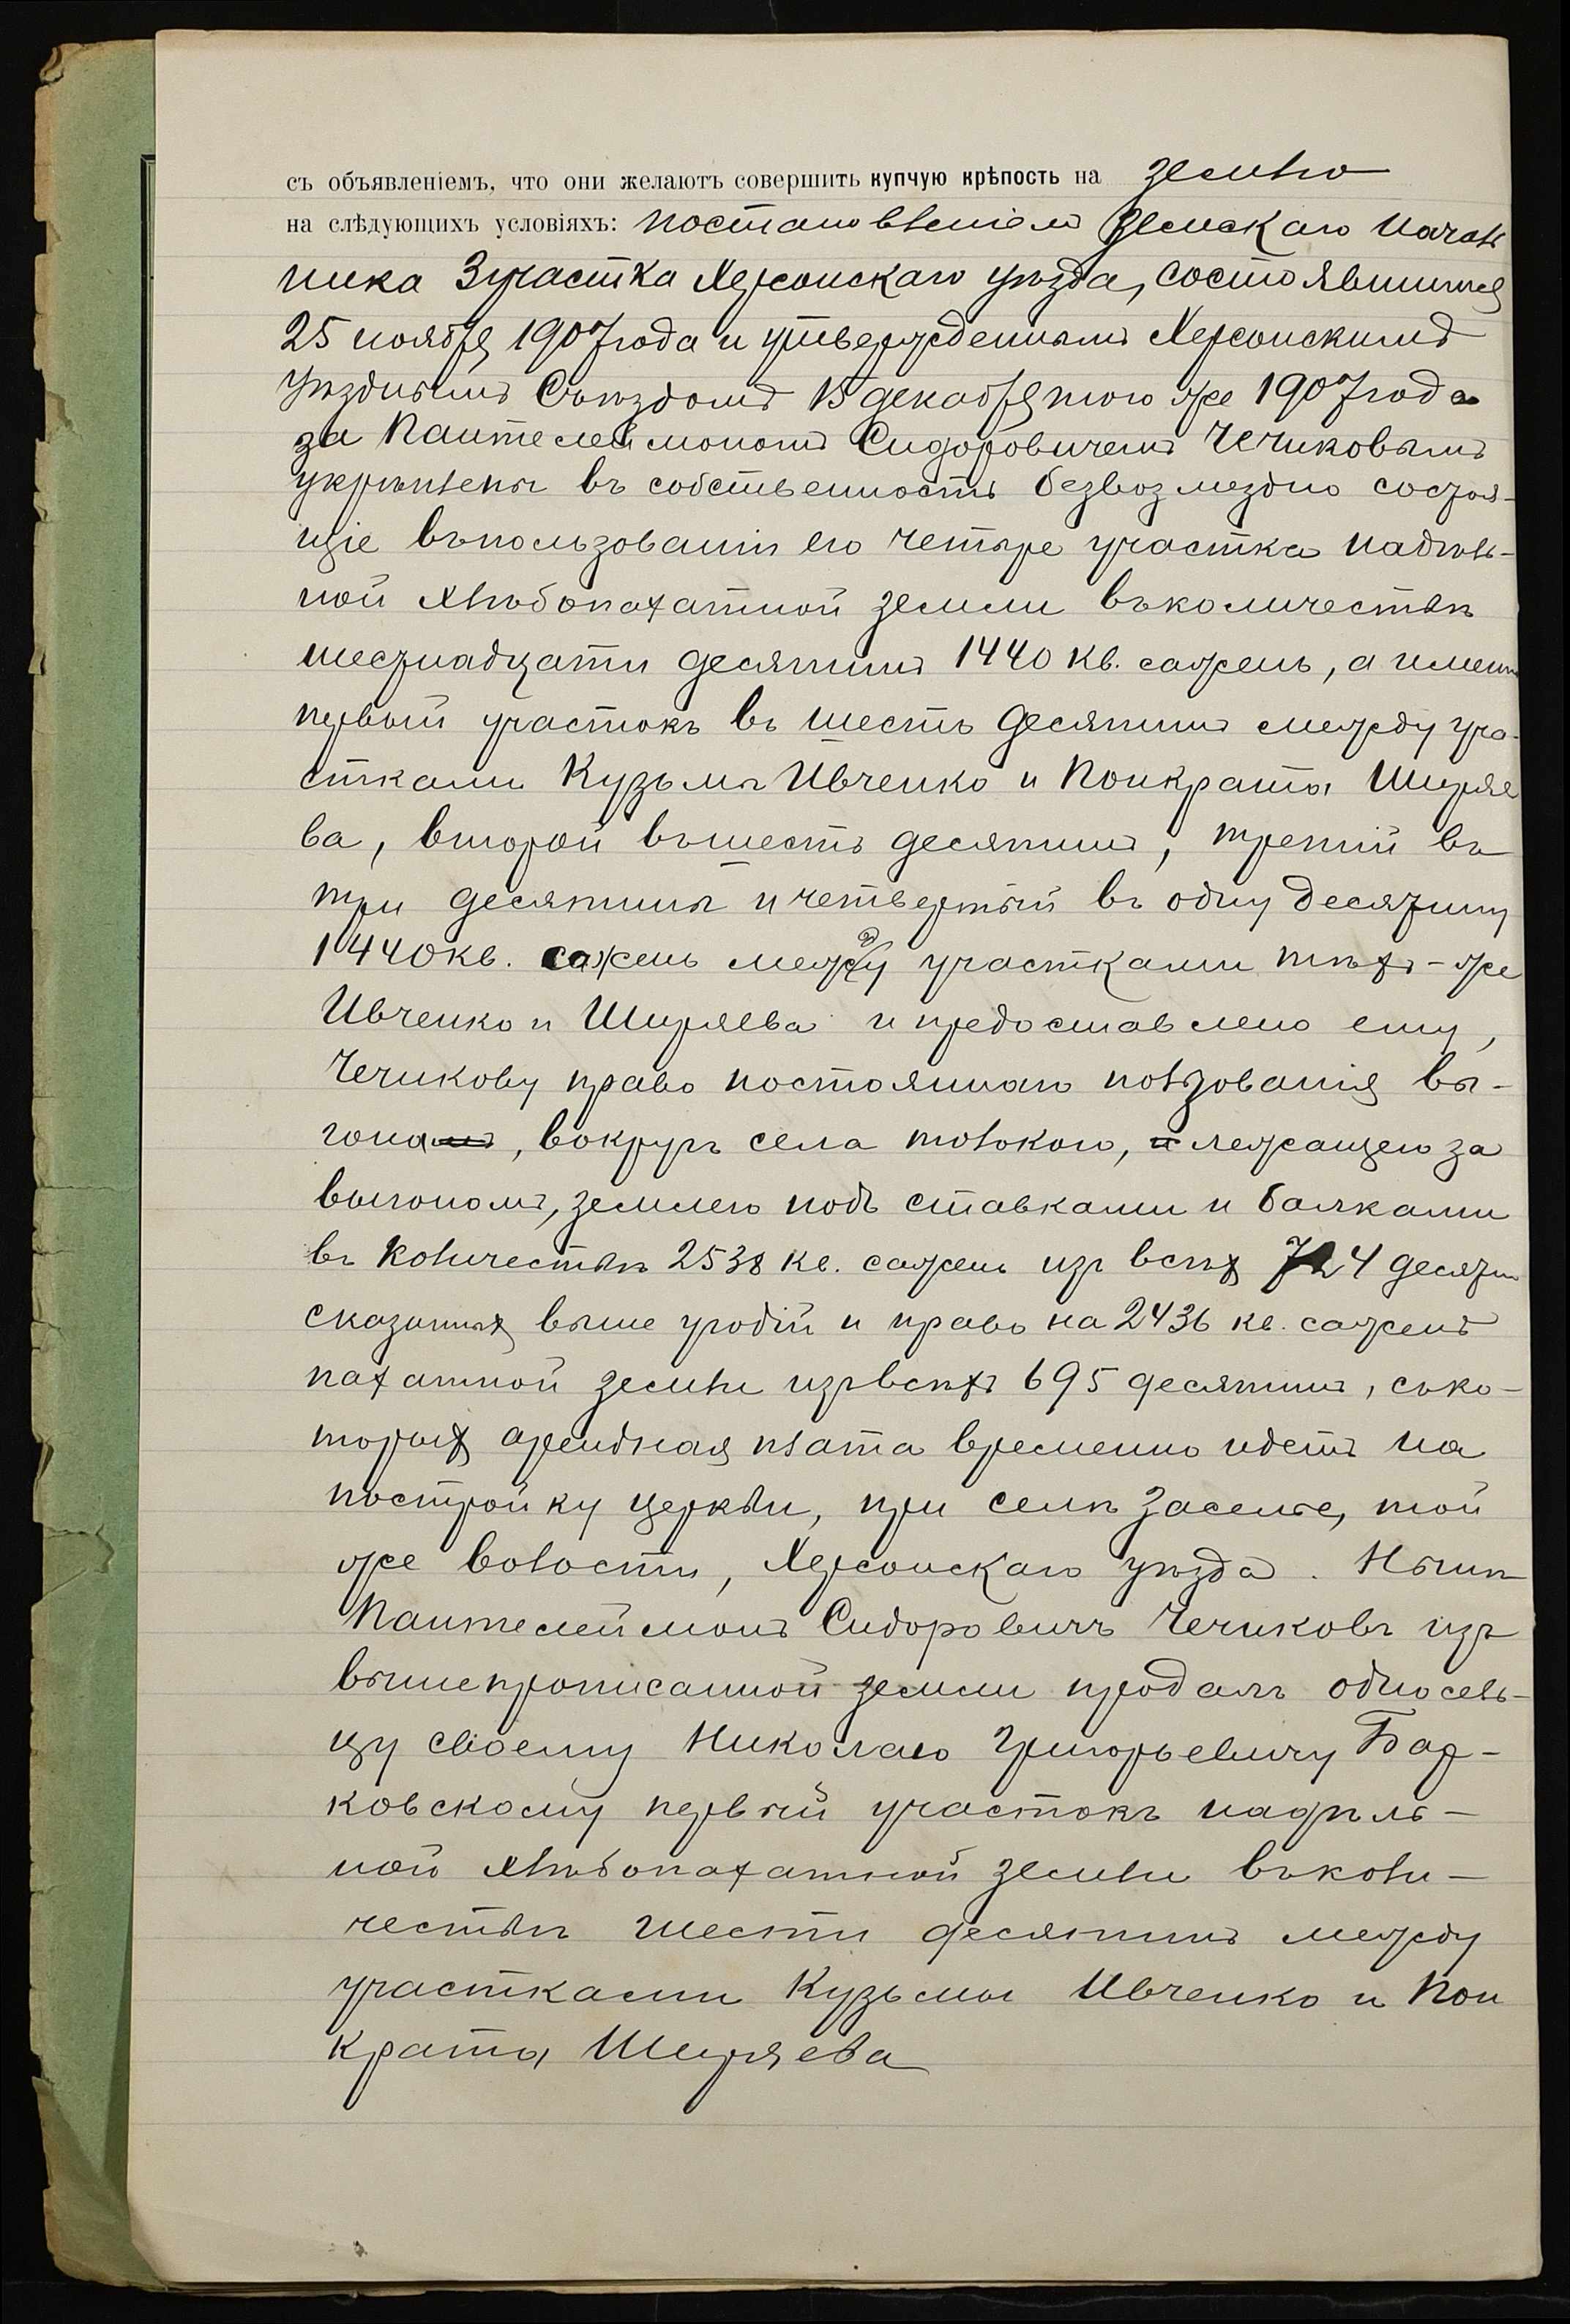 съ объявленіемъ, что они желаютъ совершить купчую крѣпость на землю
на слѣдующихъ условіяхъ: постановленіемъ Земскаго Началь
ника 3 участка Херсонскаго уѣзда, состоявшимся
25 ноября 1907 года и утвержденнымъ Херсонскимъ
Уѣзднымъ Съѣздомъ 15 декабря того же 1907 года
за Пантелеймономъ Сидоровичемъ Чечиковымъ
укрѣплены въ собственность безвозмездно состоя-
щіе въ пользованіи его четыре участка надѣль-
ной хлѣбопахатной земли въ количествѣ
шестнадцати десятинъ 1440 кв. сажень, а именно
первый участокъ въ шесть десятинъ между уча-
стками Кузьмы Ивченко и Понкрата Ширяе
ва, второй въ шесть десятинъ, третій въ
три десятины и четвертый въ одну десятину
1440 кв. сажень между участками тѣхъ-же
Ивченко и Ширяева и предоставлено ему,
Чечикову право постояннаго пользованія вы-
гона, вокругъ села толокою, и лежащею за
выгономъ, землею подъ ставками и балками
въ количествѣ 2538 кв. сажень изъ всѣхъ 724 десятин
сказанных выше угодій и право на 2436 кв. сажень
пахатной земли изъ всѣхъ 695 десятинъ, съ ко-
торых арендная плата временно идетъ на
постройку церкви, при селѣ Заселье, той
же волости, Херсонскаго уѣзда. Нынѣ
Пантелеймонъ Сидоровичъ Чечиковъ изъ
вышепрописанной земли продалъ односель-
цу своему Николаю Григорьевичу Бар-
ковскому первый участокъ надѣль-
ной хлѣбопахатной земли въ коли-
чествѣ шести десятинъ между
участками Кузьмы Ивченко и Пон
крата Ширяева